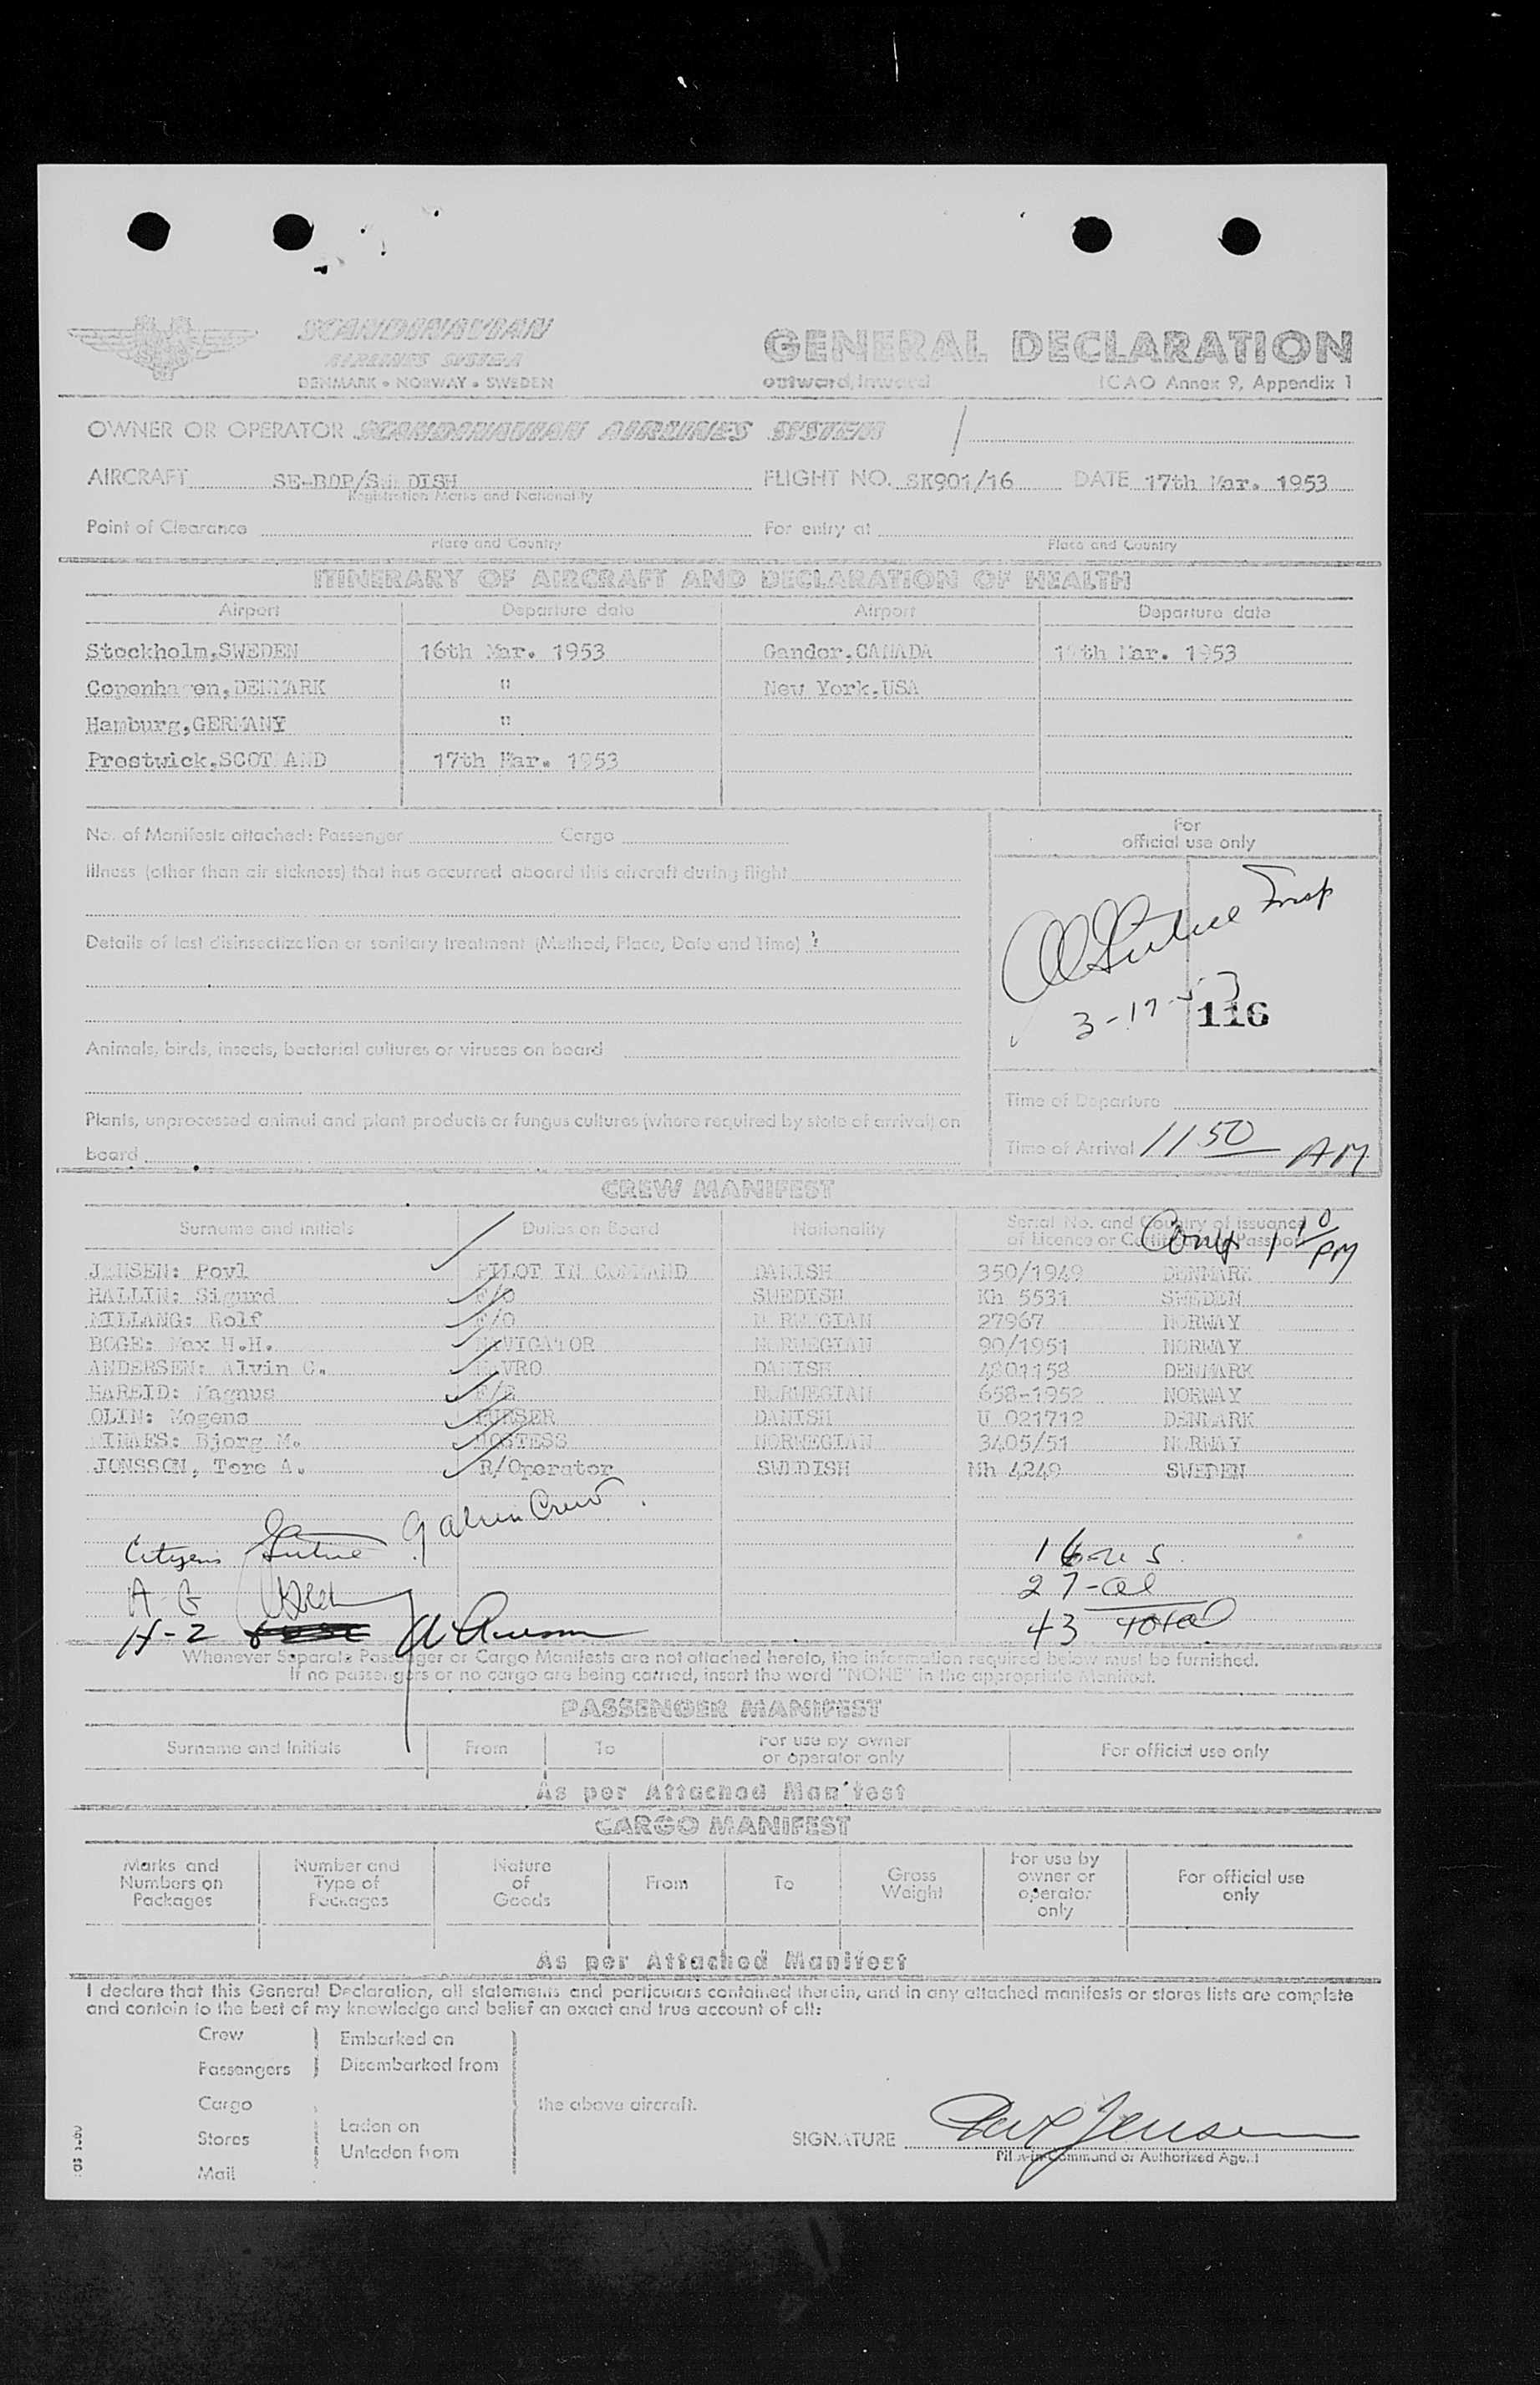 SCANDINAVIAN
AIRLINES SYSTEM
DENMARK • NORWAY • SWEDEN
GENERAL DECLARATION
outward/inward ICAO Annex 9, Appendix 1
OWNER OR OPERATOR SCANDINAVIAN AIRLINES SYSTEM
AIRCRAFT SE-BDP/SWEDISH FLIGHT NO. SK901/16 DATE 17th Mar. 1953
Registration Marks and Nationality
Point of Clearance For entry at
Place and Country Place and Country
ITINERARY OF AIRCRAFT AND DECLARATION OF HEALTH
Airport Departure date Airport Departure date
Stockholm,SWEDEN 16th Mar. 1953 Gander,CANADA th Mar. 1953
Copenhagen,DENMARK " New York,USA
Hamburg,GERMANY "
Prestwick,SCOTLAND 17th Mar. 1953
No. of Manifests attached: Passenger Cargo
For
official use only
Illness (other than air sickness) that has occurred aboard this aircraft during flight
Insp
Details of last disinsectization or sanitary treatment (Method, Place, Date and Time)
3-17-53
116
Animals, birds, insects, bacterial cultures or viruses on board
Time of Departure
Plants, unprocessed animal and plant products or fungus cultures (where required by state of arrival) on
board
Time of Arrival 11 50 AM
CREW MANIFEST
Surname and initials Duties on Board Nationality Serial No. and Country of issuance
of Licence or Certificate or Passport
1 10 PM
JENSEN: Povl PILOT IN COMMAND DANISH 350/1949 DENMARK
HALLIN: Sigurd F/O SWEDISH Kh 5531 SWEDEN
MILLANG: Rolf F/O NORWEGIAN 27967 NORWAY
BOGE: Max H.H. NAVIGATOR NORWEGIAN 90/1951 NORWAY
ANDERSEN: Alvin C. NAVRO DANISH 4801158 DENMARK
HAREID: Magnus F/E NORWEGIAN 658-1952 NORWAY
OLIN: Mogens PURSER DANISH U 021712 DENMARK
Bjorg M. HOSTESS NORWEGIAN 3405/51 NORWAY
JONSSON, Tore A. R/Operator SWEDISH Mh 4249 SWEDEN
9 alien Crew
Citizens
16
27-al
43 total
H-2
Whenever Separate Passenger or Cargo Manifests are not attached hereto, the information required below must be furnished.
If no passengers or no cargo are being carried, insert the word "NONE" in the appropriate Manifest.
PASSENGER MANIFEST
Surname and Initials From To For use by owner
or operator only For official use only
As per Attached Manifest
CARGO MANIFEST
Marks and
Numbers on
Packages Number and
Type of
Packages Nature
of
Goods From To Gross
Weight For use by
owner or
operator
only For official use
only
As per Attached Manifest
I declare that this General Declaration, all statements and particulars contained therein, and in any attached manifests or stores lists are complete
and contain to the best of my knowledge and belief an exact and true account of all:
Crew Embarked on
Passengers Disembarked from
Cargo the above aircraft.
Laden on
Stores
Unladen from
Mail
SIGNATURE Povl Jensen
Pilot-in-Command or Authorized Agent